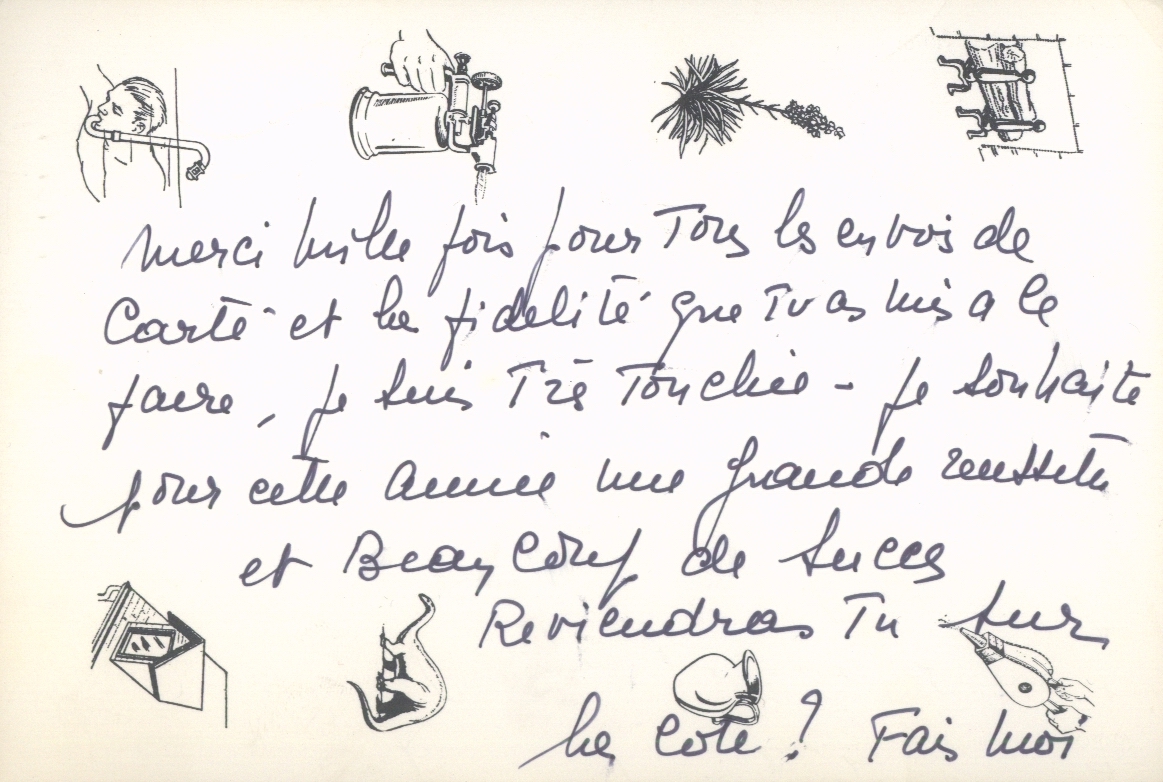 Merci mille fois pour Tous les envois de
Carte et la fidelité que Tu as mis a le
faire, je suis Très Touchée - je souhaite
pour cette année une grande reussite
et Beaucoup de succes
Reviendras Tu sur
la Cote ? Fais moi